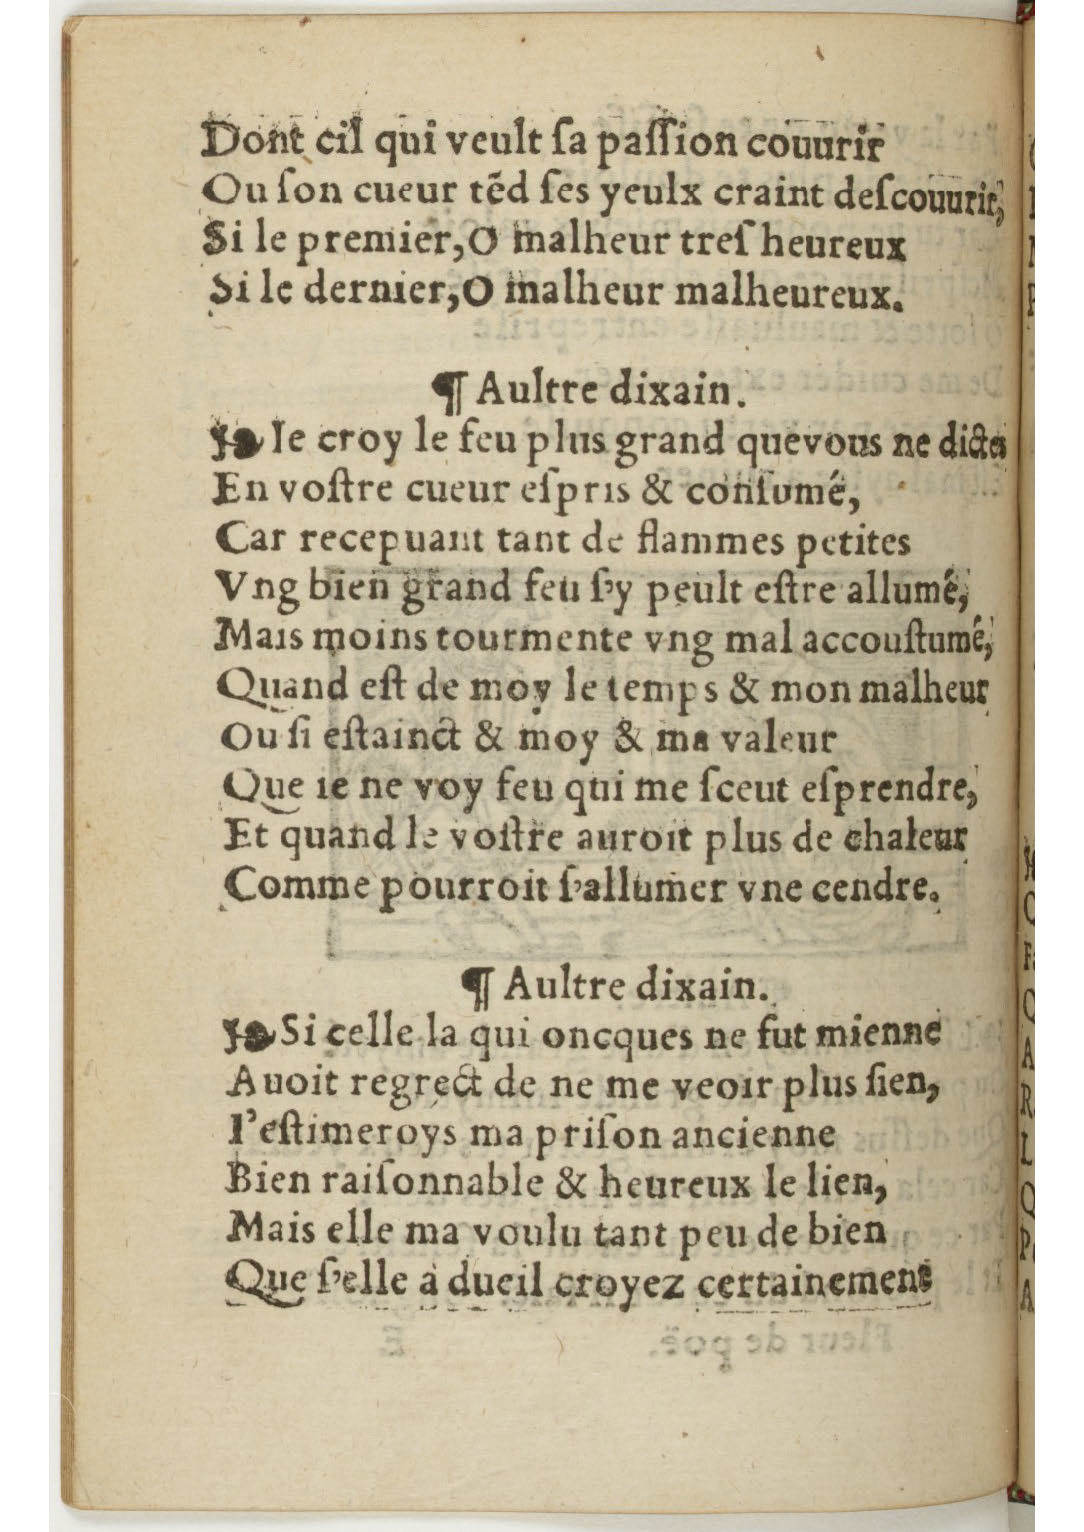 Dont cil qui veult ſa paſſion couurir
Ou ſon cueur tẽd ſes yeulx craint deſcouurir,
Si le premier, O malheur treſ heureux
Si le dernier, O malheur malheureux.
¶ Aultre dixain.
Ie croy le feu plus grand que vous ne dictes
En voſtre cueur eſpris & conſumé,
Car recepuant tant de flammes petites
Vng bien grand feu ſ'y peult eſtre allumé,
Mais moins tourmente vng mal accouſtumé,
Quand eſt de moy le temps & mon malheur
Ou ſi eſtainct & moy & ma valeur
Que ie ne voy feu qui me ſceut eſprendre,
Et quand le voſtre auroit plus de chaleur
Comme pourroit ſ'allumer vne cendre.
¶ Aultre dixain.
Si celle la qui oncques ne fut mienne
Auoit regrect de ne me veoir plus ſien,
I'eſtimeroys ma priſon ancienne
Bien raiſonnable & heureux le lien,
Mais elle ma voulu tant peu de bien
Que ſ'elle a dueil croyez certainement